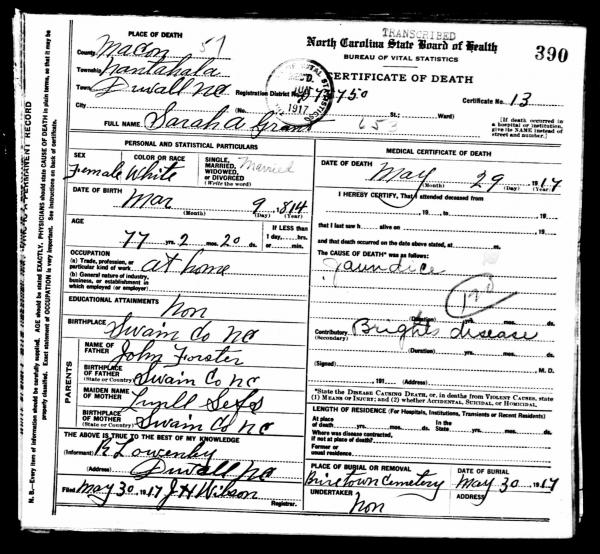 TRANSCRIBED
North Carolina State Board of Health
BUREAU OF VITAL STATISTICS
CERTIFICATE OF DEATH
390
PLACE OF DEATH
County Macon 57
Township Nantahala
Town Duvall NC
Registration District No.
Certificate No. 13
City
(No.
St.;
Ward)
[If death occurred in
a hospital or institution,
give its NAME instead of
street and number.]
1917
FULL NAME Sarah A Grant
653
PERSONAL AND STATISTICAL PARTICULARS
SEX
Female
COLOR OR RACE
White
SINGLE,
MARRIED,
WIDOWED,
OR DIVORCED
(Write the word)
Married
DATE OF BIRTH
Mar 9
(Month) (Day) (Year)
AGE
77 yrs. 2 mos. 20 ds.
IF LESS than
1 day, hrs.
or min.
OCCUPATION
(a) Trade, profession, or
particular kind of work at home
(b) General nature of industry,
business, or establishment in
which employed (or employer)
EDUCATIONAL ATTAINMENTS non
BIRTHPLACE Swain Co NC
PARENTS
NAME OF
FATHER John Forster
BIRTHPLACE
OF FATHER
(State or Country) Swain Co NC
MAIDEN NAME
OF MOTHER
BIRTHPLACE
OF MOTHER
(State or Country) Swain Co NC
THE ABOVE IS TRUE TO THE BEST OF MY KNOWLEDGE
(Informant) R Lowenby
(Address) Duvall NC
Filed May 30 1917 J H Wilson
Registrar.
MEDICAL CERTIFICATE OF DEATH
DATE OF DEATH
May 29 1917
(Month) (Day) (Year)
I HEREBY CERTIFY, That I attended deceased from
, 19 to , 19
that I last saw h alive on , 19
and that death occurred on the date above stated, at m.
The CAUSE OF DEATH* was as follows:
Jaundice
(Duration) yrs. mos. ds.
Contributory Brights disease
(Secondary)
(Duration) yrs. mos. ds.
(Signed) , M. D.
, 191 (Address)
*State the DISEASE CAUSING DEATH, or, in deaths from VIOLENT CAUSES, state
(1) MEANS OF INJURY; and (2) whether ACCIDENTAL, SUICIDAL, or HOMICIDAL.
LENGTH OF RESIDENCE (For Hospitals, Institutions, Transients or Recent Residents)
At place
of death yrs. mos. ds.
In the
State yrs. mos. ds.
Where was disease contracted,
if not at place of death?
Former or
usual residence
PLACE OF BURIAL OR REMOVAL
Cemetery
DATE OF BURIAL
May 30 1917
UNDERTAKER
non
ADDRESS
N. B.—Every item of information should be carefully supplied. AGE should be stated EXACTLY. PHYSICIANS should state CAUSE OF DEATH in plain terms, so that it may be
properly classified. Exact statement of OCCUPATION is very important. See instructions on back of certificate.
PERMANENT RECORD